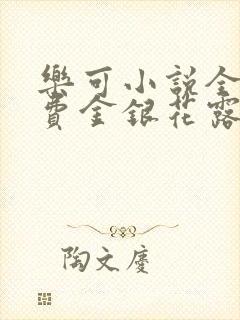 樂可小說全
費金銀花露
陶文慶